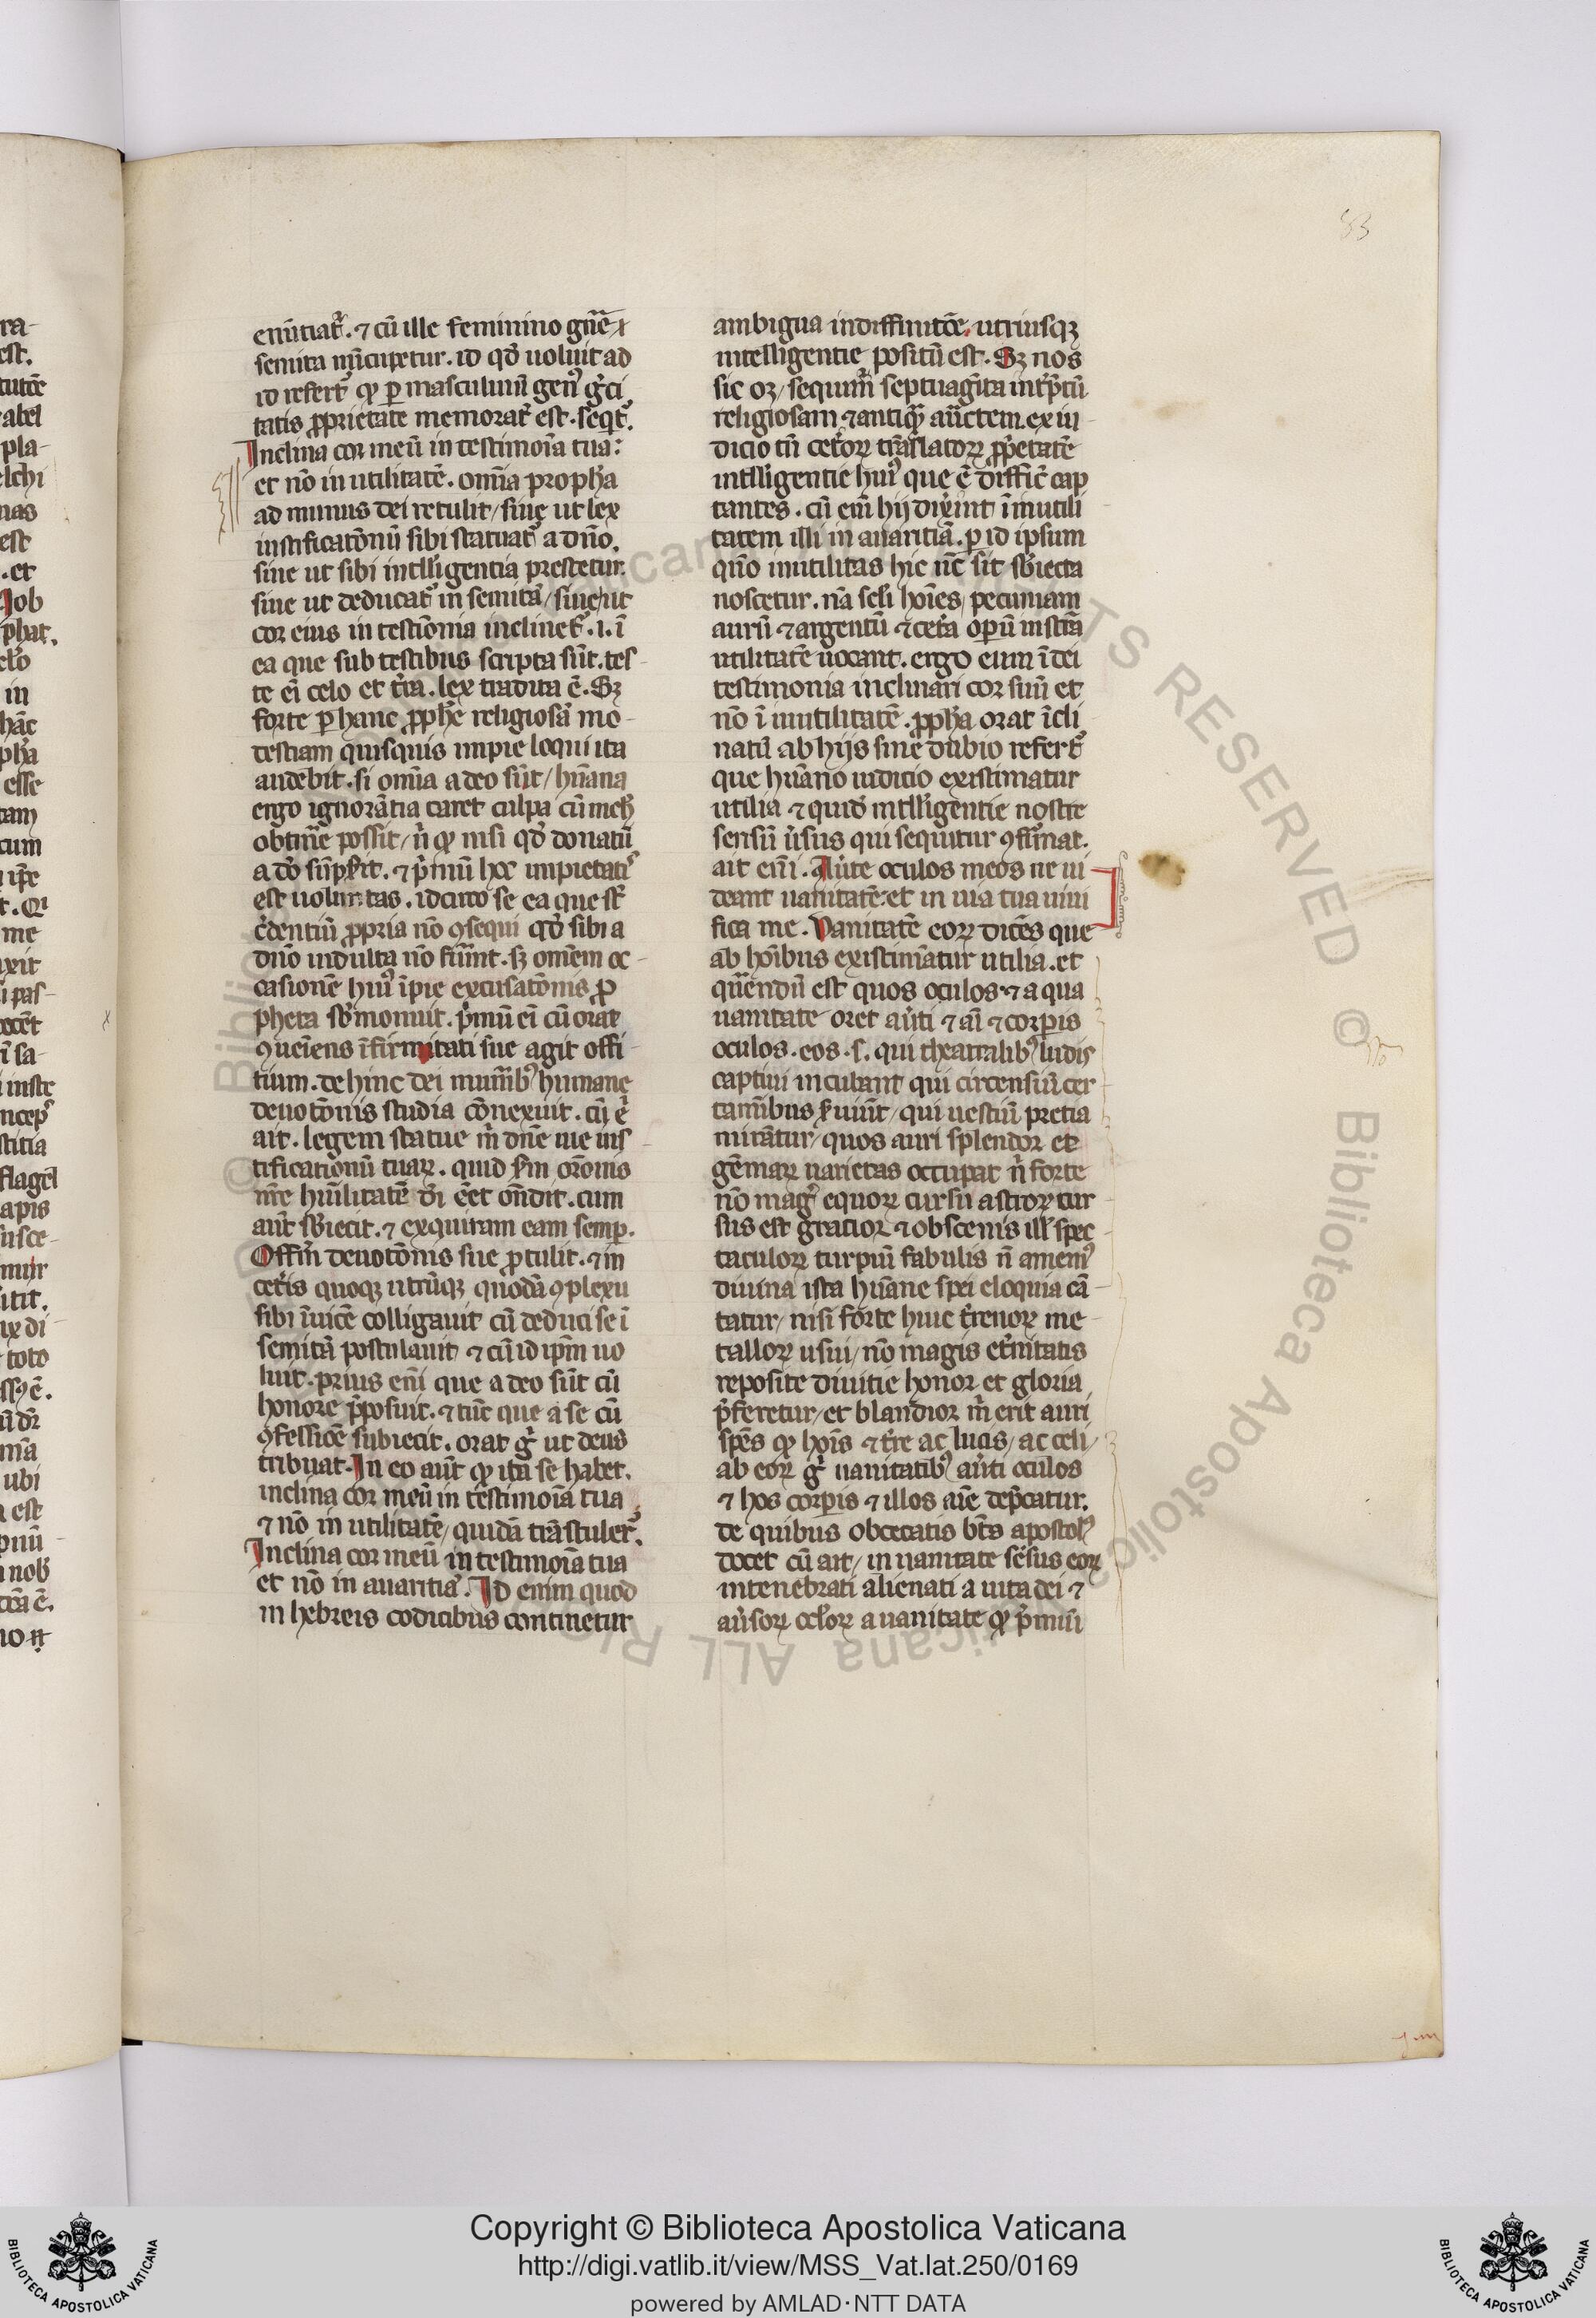 83
enūtiat᷑. ⁊ cū ille feminino gñe
semita nūcupetur. id qd̛ uoluit ad
id refert᷑ ꝙ ꝑ masculinū gen᷒ gͥci
tatis ꝓprietate memorat᷑ est. seqͥt᷑.
Inclina cor meū in testimōia tua:
et nō in utilitatē. omīa propha
ad munus dei retulit/ siue ut lex
iustificatōnū sibi statuat᷑ a dño.
siue ut sibi intll̛igentia prestetur.
siue ut deducat᷑ in semitā/ siue ut
cor eius in testiōnia inclinet᷑. i. ī
ea que sub testibus scripta sūt. tes
te ei celo et t̛ra. lex tradita ē. Sꝫ
forte ꝑ hanc ꝓph̄e religiosā mo
testiam quisquis impie loqui ita
audebit. si omīa a deo sūt/ hūana
ergo ignorātia caret culpa cū meh̛
obtīne possit/ n̄ ꝙ nisi qd̛ donatū
a dō sūpserit. ⁊ pͥmū hoc impietatis
est uoluntas. idcirco se ea que st̄
c̛dentiū ꝓpria nō ꝯsequi qd̛ sibi a
dño indulta nō fūint. sꝫ omēm oc
casionē hui᷒ īpie excusatōnis ꝓ
pheta sb̄monuit. pͥmū eī cū orat
ꝯueīens īfirmitati sue agit offi
tium. dehinc dei munīb᷒ humane
deuotōnis studia cōnexuit. cū eͥ
ait. legem statue m̄ dñe uie ius
tificationū tuaꝝ. quid sm̄ orōnis
nr̄e hūilitatē dn̄i ēet on̄dit. cum
aūt sb̄iecit. ⁊ exquiram eam semꝑ.
Offm̄ deuotōnis sue ꝓtulit. ⁊ in
cet̛is quoqꝫ utrūqꝫ quodā ꝯplexu
sibi īuicē colligauit cū deduci se ī
semitā postulauit ⁊ cū id ip̄m uo
luit. prius enī que a deo sūt cū
honore p̄posuit. ⁊ tūc que a se cū
ꝯfessiōe subiecit. orat gͦ ut deus
tribuat. In eo aūt ꝙ ita se habet.
inclina cor meū in testimōia tua
⁊ nō in utilitatē/ quidā trāstuler᷑.
Inclina cor meū in testimōia tua
et nō in auaritiā. Id enim quod
in hebreis codicibus continetur
ambigua indiffinitōe utriusqꝫ
intelligentie positū est. Sꝫ nos
sic oꝫ/ sequim̄ septuagīta int̛p̄tū
religiosam ⁊ antiqͣ auctem. ex iu
dicio tn̄ cet̛oꝝ trāslatoꝝ ꝓp̄etatē
intlligentie hui᷒ que ē diffic̄ cap
tantes. cū em̄ hij dix̛int ī inutili
tatem illi in auaritiā. ꝑ id ipsum
qūo inutilitas hic nc̄ sit sb̄iecta
noscetur. nā seli hoīes/ pecuniam
aurū ⁊ argentū ⁊ cet̛a oꝑū instra
utilitatē uocant. ergo eum ī dei
testimonia inclinari cor suū et
nō ī inutilitatē. ꝓph̄a orat īcli
natū ab hijs sine dubio refert᷑
que hūano iudicio existimatur
utilia ⁊ quid intll̛igentie nostre
sensū ūsus qui sequitur ꝯfirmat.
ait enī. Aưte oculos meos ne ui
deant uanitatē. et in uia tua uiui
fica me. Vanitatē eoꝝ dicēs que
ab hoīibus existimātur utilia. et
querendū est quos oculos ⁊ a qua
uanitate oret aưti ⁊ aī ⁊ corꝑis
oculos. eos. s. qui theatralib᷒ ludis
captiui incubant qui circensiū cer
tamībus s̛uiūt/ qui uestiū pretia
mirātur/ quos auri splendor et
gēmaꝝ uarietas occupat n̄ forte
nō mag᷒ equoꝝ cursu astroꝝ cur
sus est gratior ⁊ obscenis ill̛ spec
taculoꝝ turpiū fabulis n̄ ameni᷒
diuina ista hūane spei eloquia cā
tatur/ nisi forte huic t̛renoꝝ me
talloꝝ usui/ nō magis et̛nitatis
reposite diuitie honor et gloria
p̄feretur/ et blandior m̄ erit auri
spēs ꝙ hoīs ⁊ t̛re ac lucis/ ac celi/
ab eoꝝ gͦ uanitatib᷒ aưti oculos
⁊ hos corꝑis ⁊ illos aīe dep̄catur.
de quibus obcecatis bt̄s apostol᷒
docet cū ait/ in uanitate sēsus eoꝝ
intenebrati alienati a uita dei ⁊
aưsoꝝ ocl̛oꝝ a uanitate ꝙ p̄miū
Copyright © Biblioteca Apostolica Vaticana
http://digi.vatlib.it/view/MSS_Vat.lat.250/0169
powered by AMLAD·NTT DATA
BIBLIOTECA APOSTOLICA VATICANA
BIBLIOTECA APOSTOLICA VATICANA